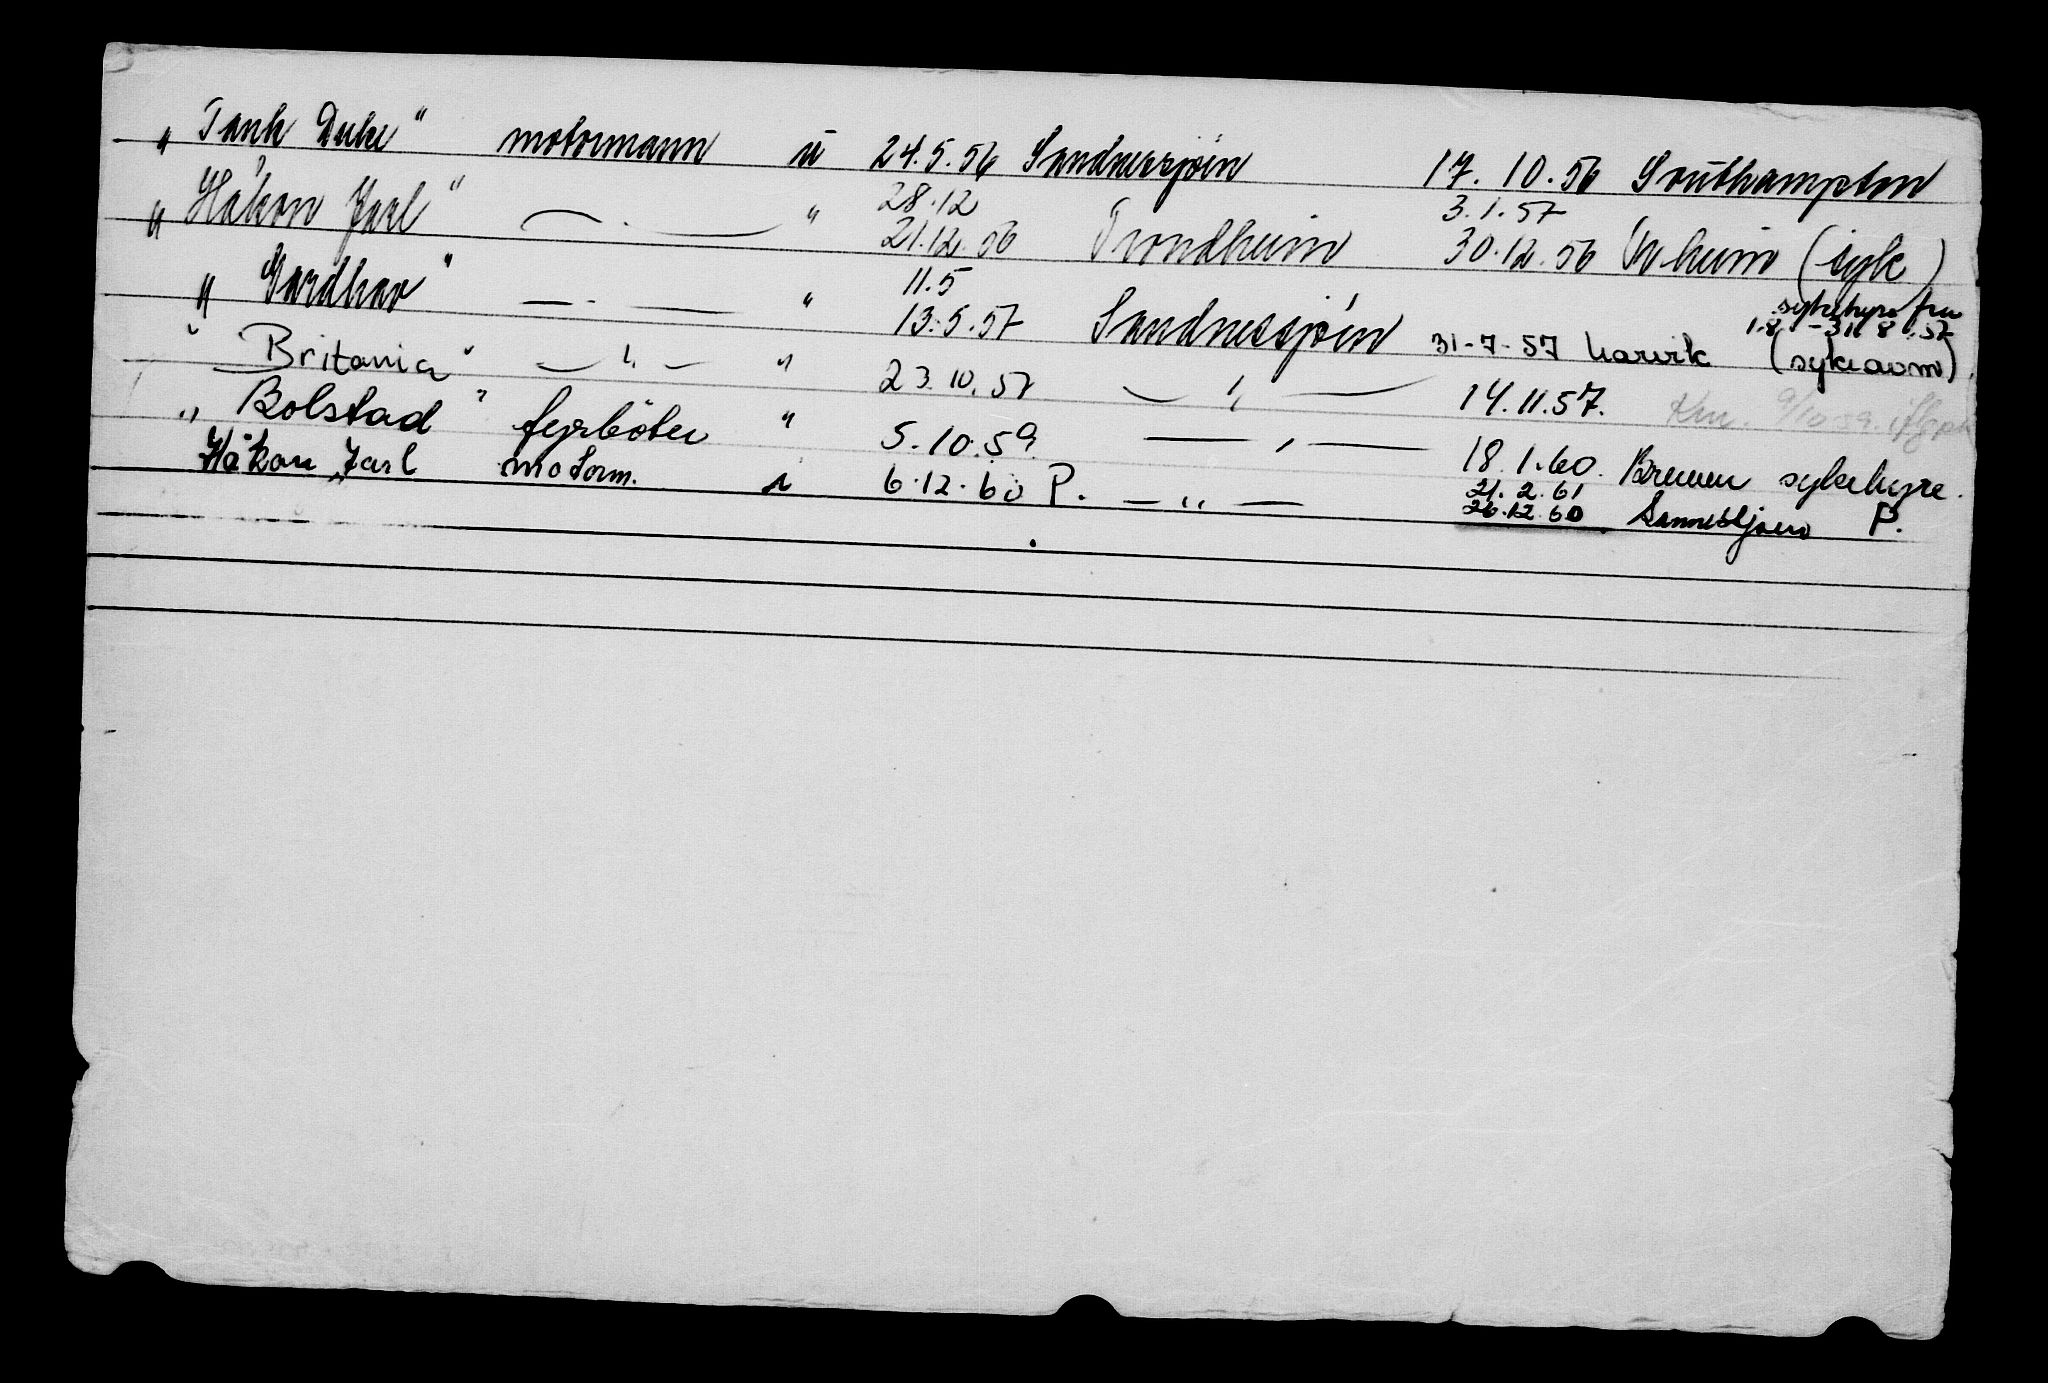 „Tank Duke“ motormann u 24.5.56 Sandnessjøen 17.10.56 Southampton
28.12 3.1.57
„Håkon Jarl“ — . — " 21.12.56 Trondheim 30.12.56 Trheim (syk)
11.5 sykehyre fra
1.8. - 31.8.57
„Gardhav“ — . — " 13.5.57 Sandnessjøen 31-7-57 Narvik (sykeavm).
"Britania" — " — " 23.10.57 — " — 14.11.57. 9/10 59.
"Bolstad" fyrböter " 5.10.59 — " — 18.1.60. Bremen sykehyre.
21.2.61
Håkon Jarl motorm. i 6.12.60 P. — " — 26.12.60. Sannessjøen P.